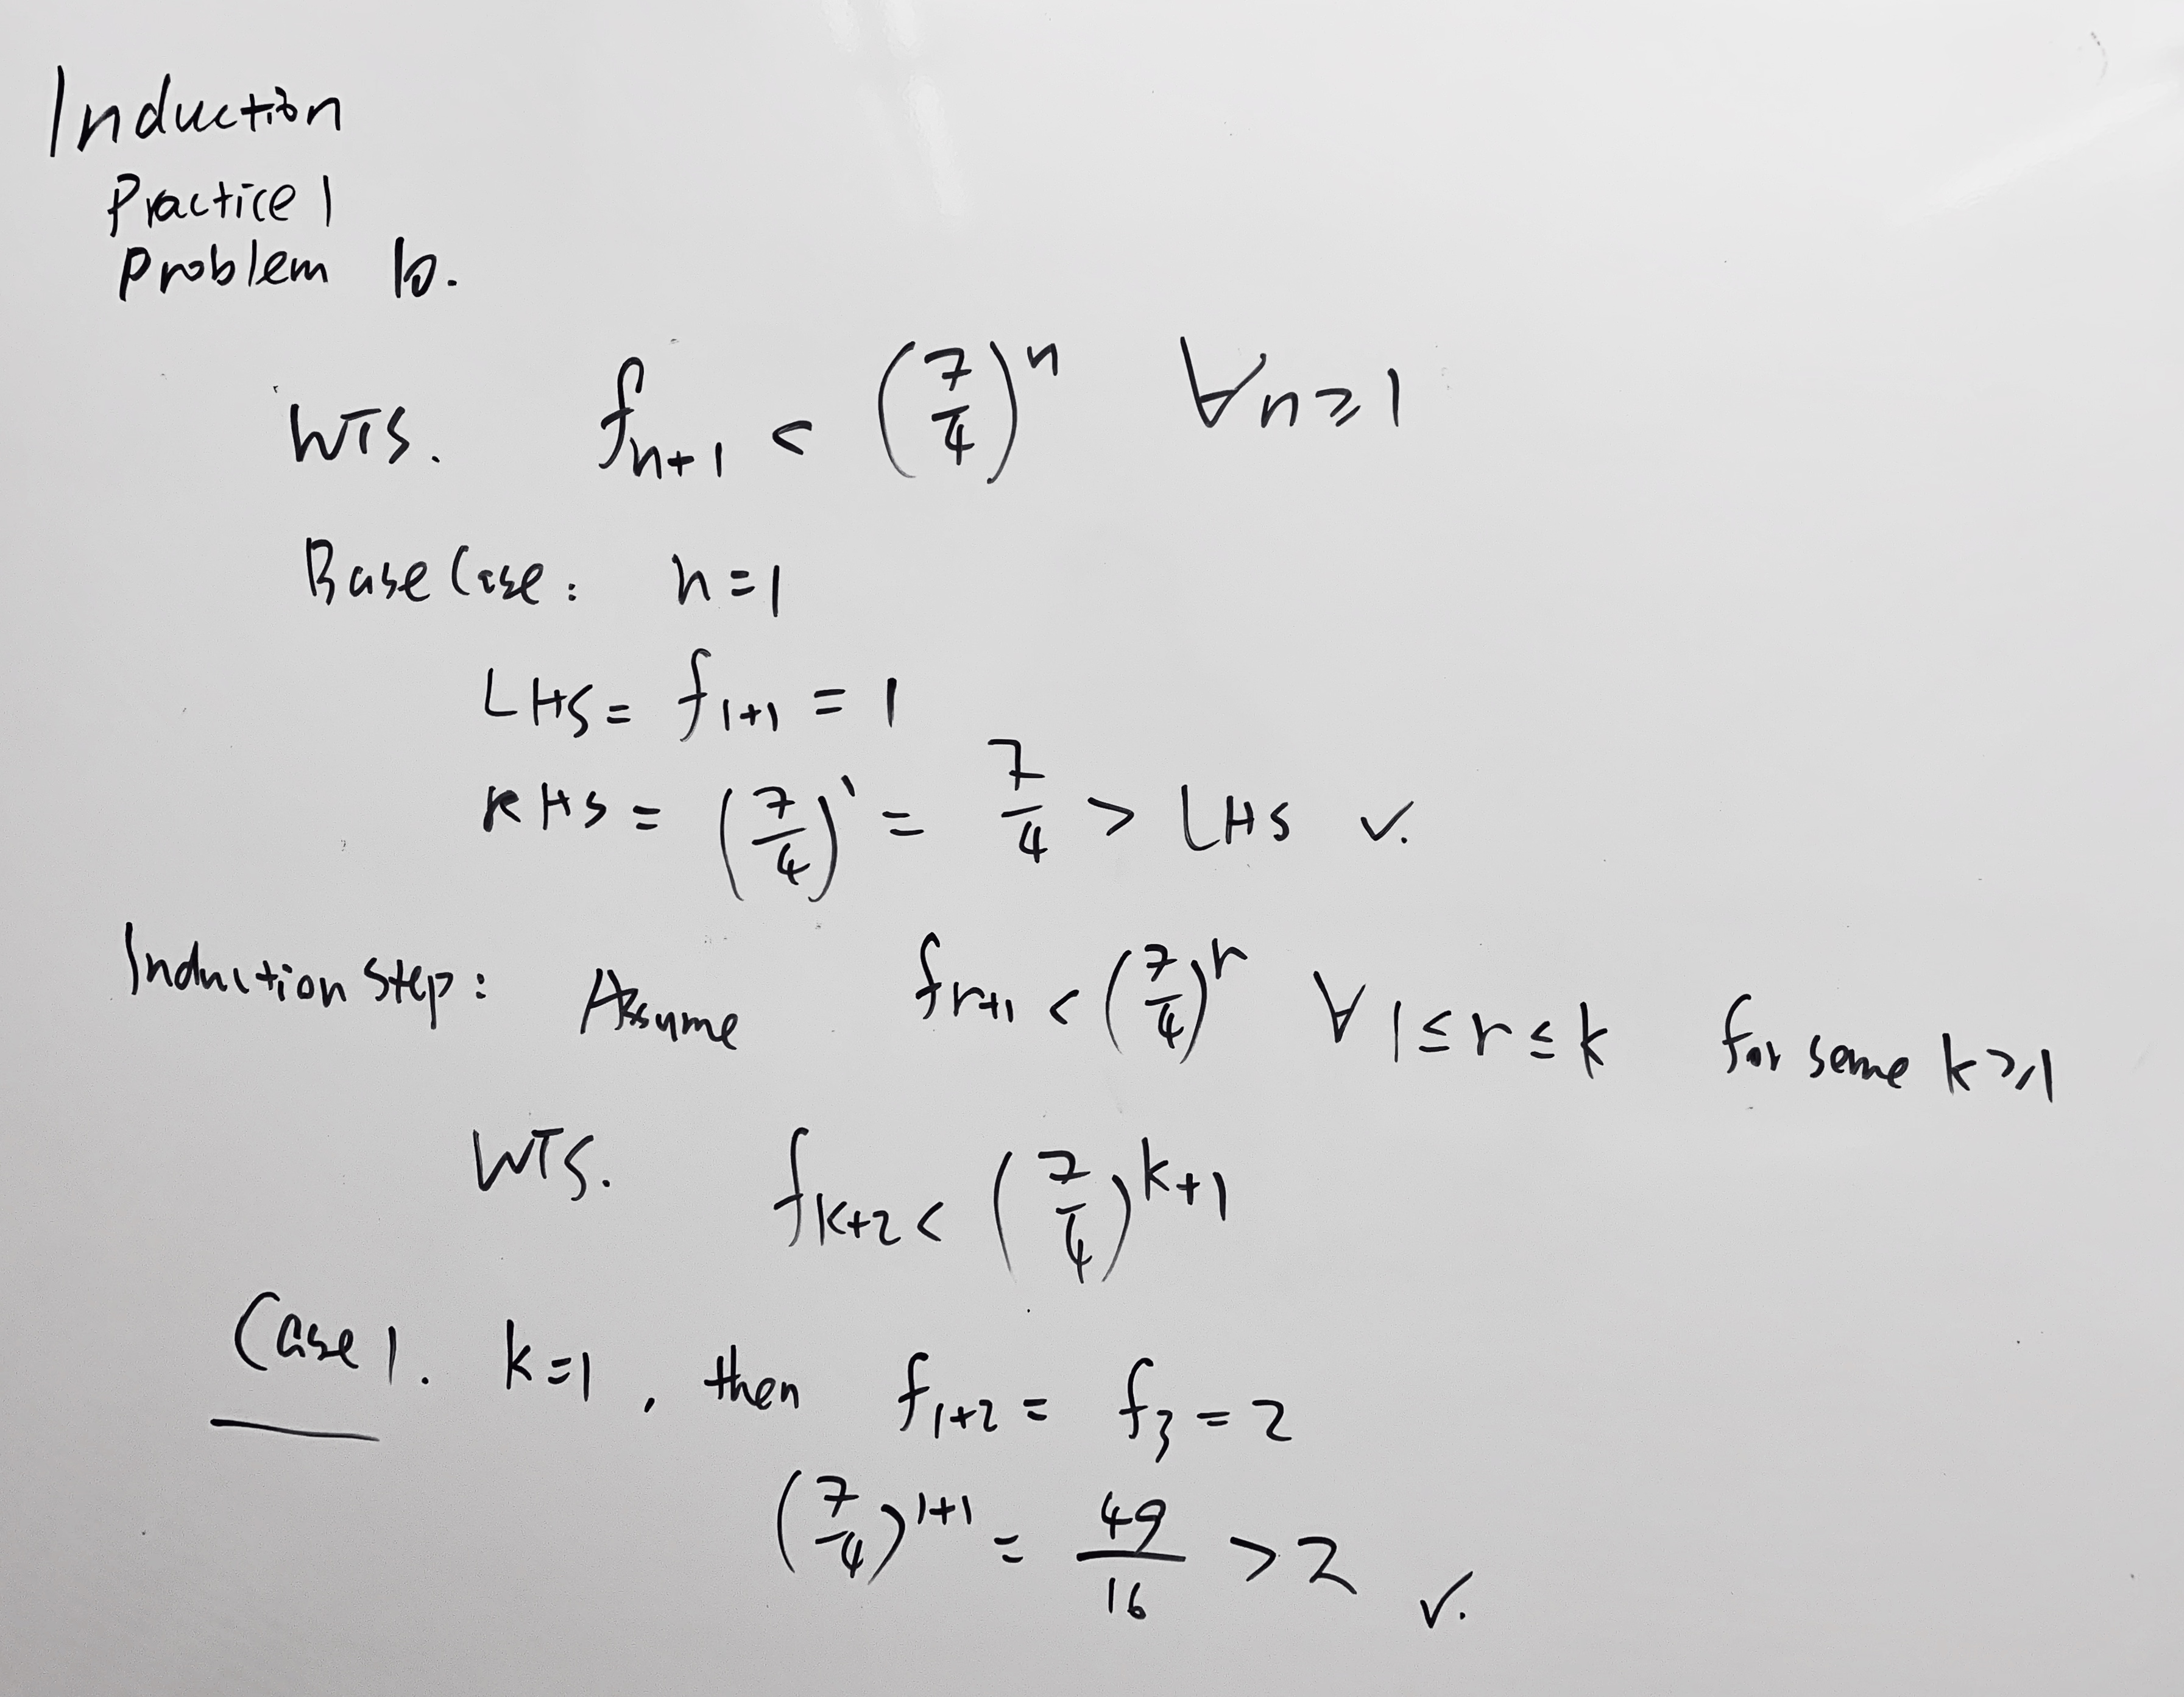 Induction
Practice 1
Problem 10.
WTS. f_{n+1} < (7/4)^n ∀n≥1
Base Case: n=1
LHS = f_{1+1} = 1
RHS = (7/4)^1 = 7/4 > LHS ✓.
Induction Step: Assume f_{r+1} < (7/4)^r ∀ 1≤r≤k for some k≥1
WTS. f_{k+2} < (7/4)^{k+1}
Case 1. k=1, then f_{1+2} = f_3 = 2
(7/4)^{1+1} = 49/16 > 2 ✓.